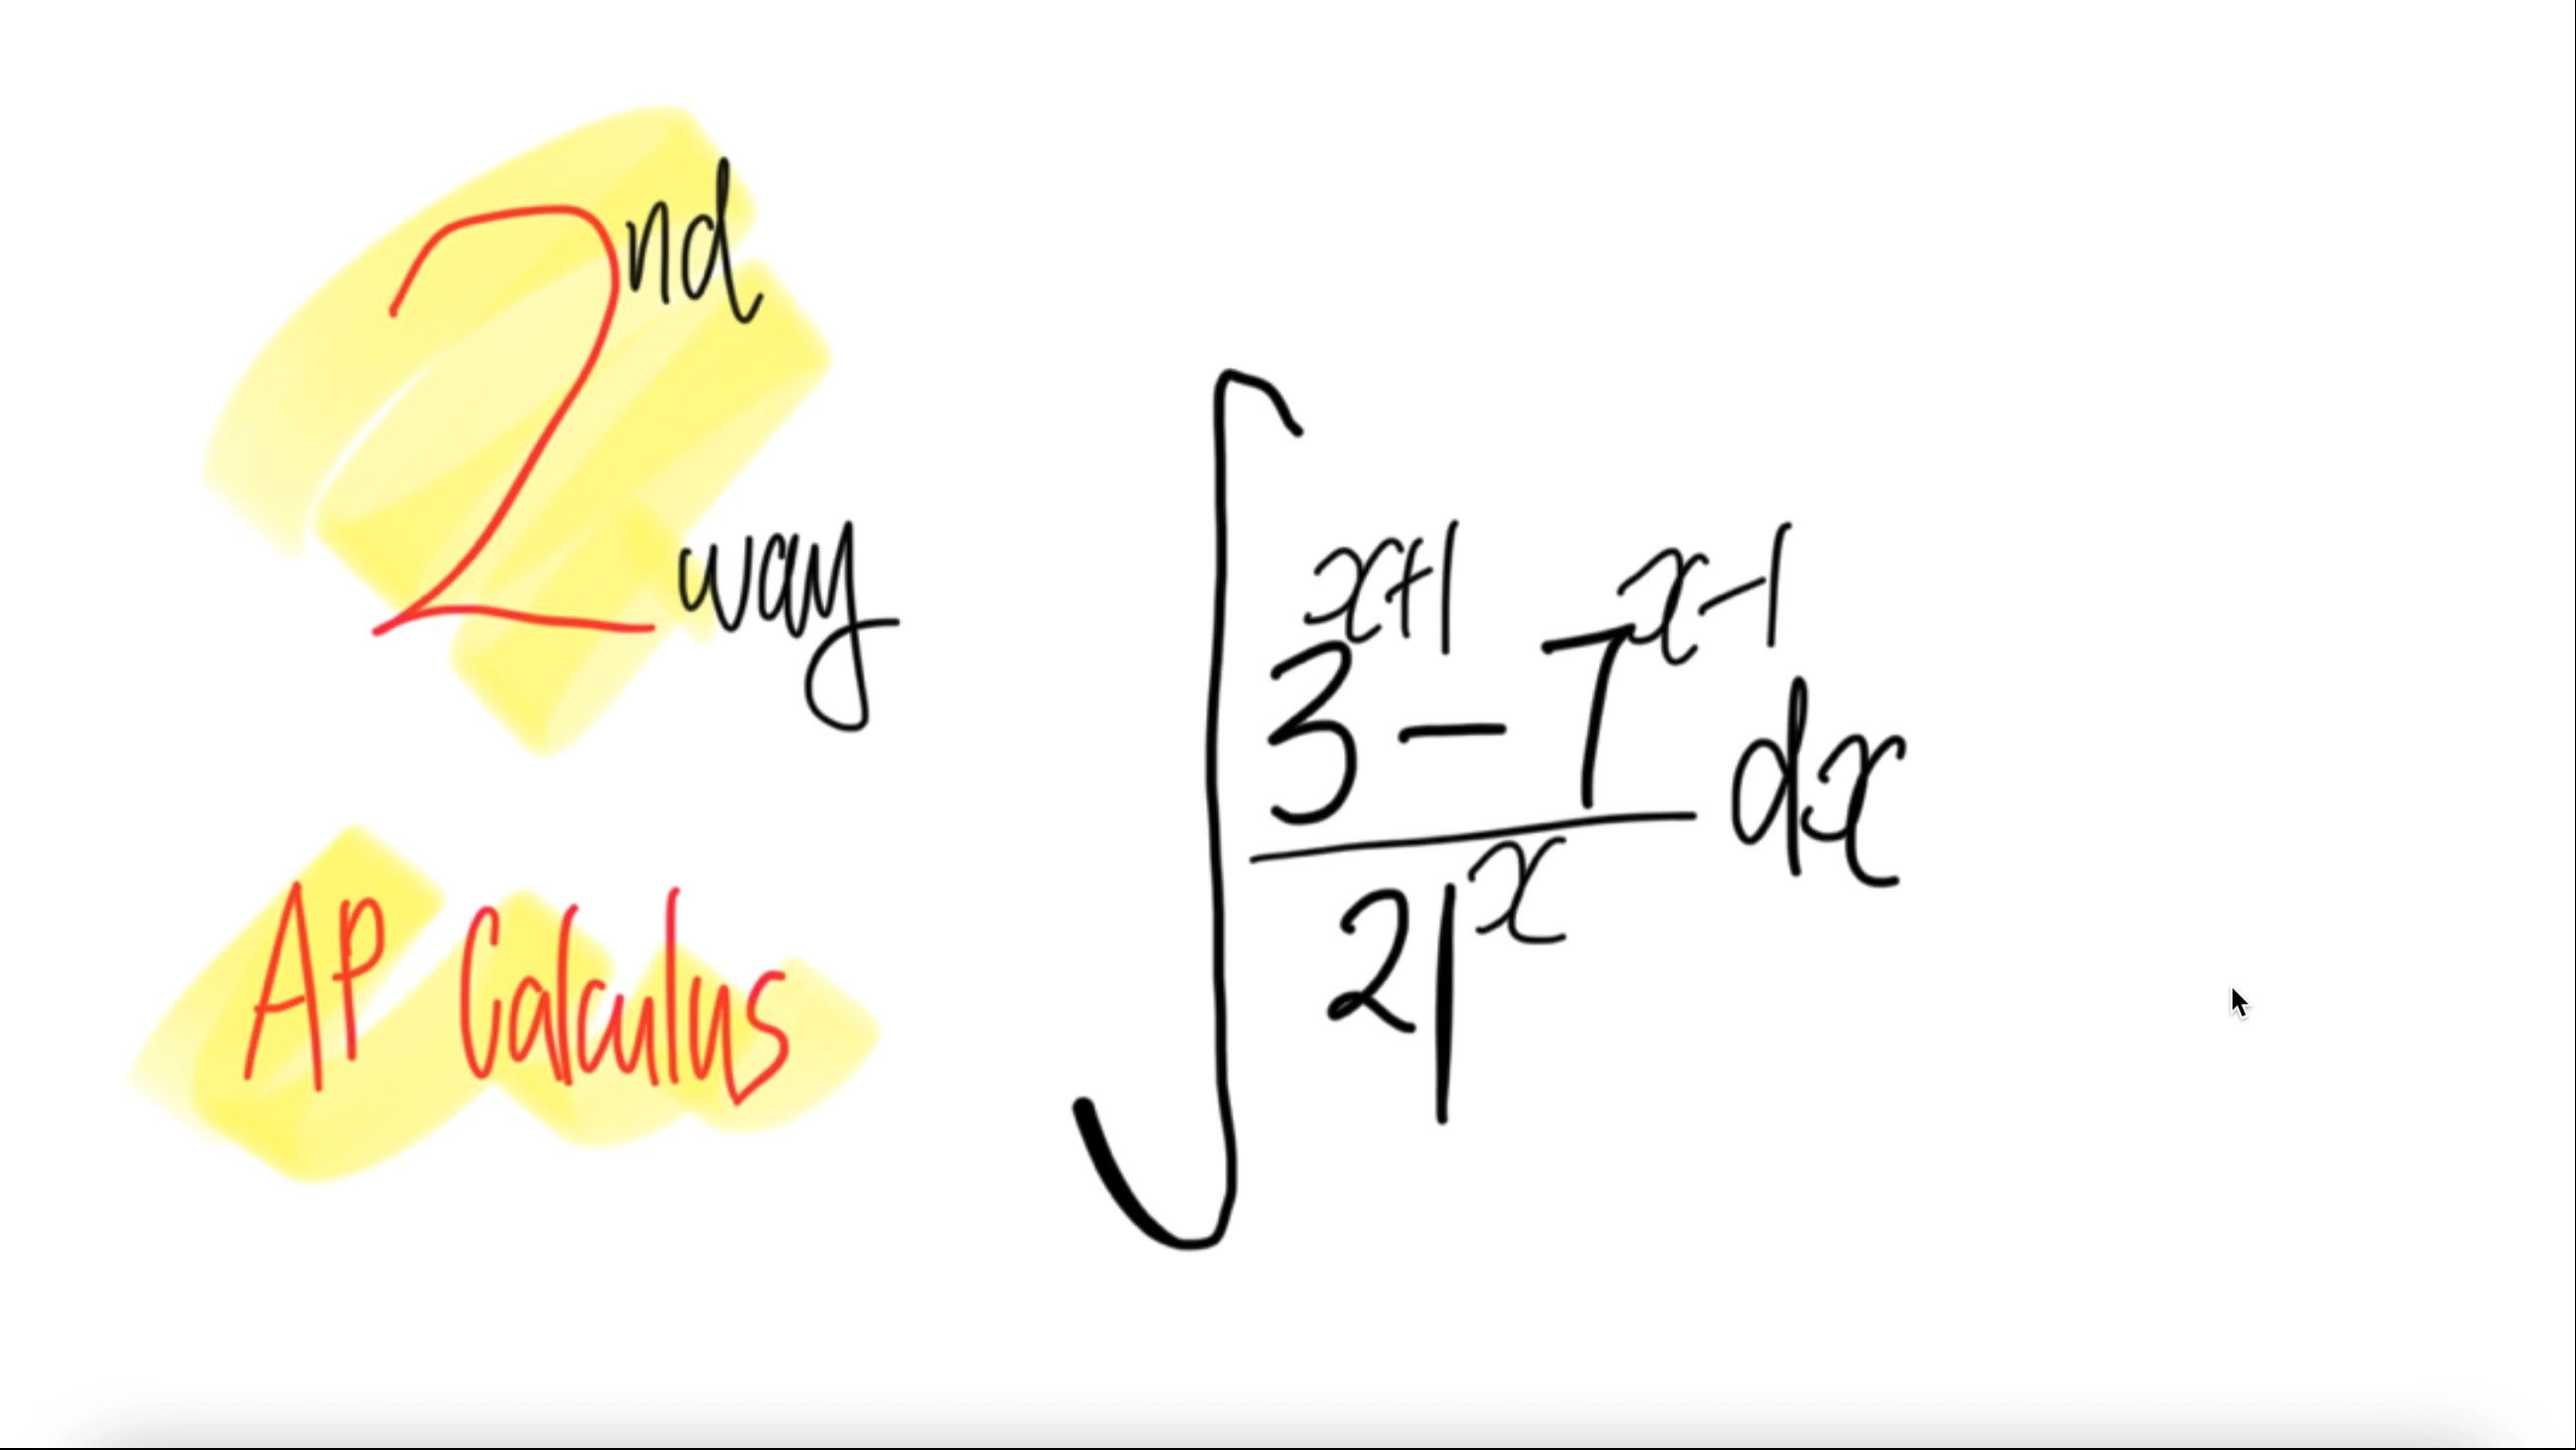 2nd
way
AP Calculus
∫ (3^(x+1) − 7^(x−1)) / 21^x dx